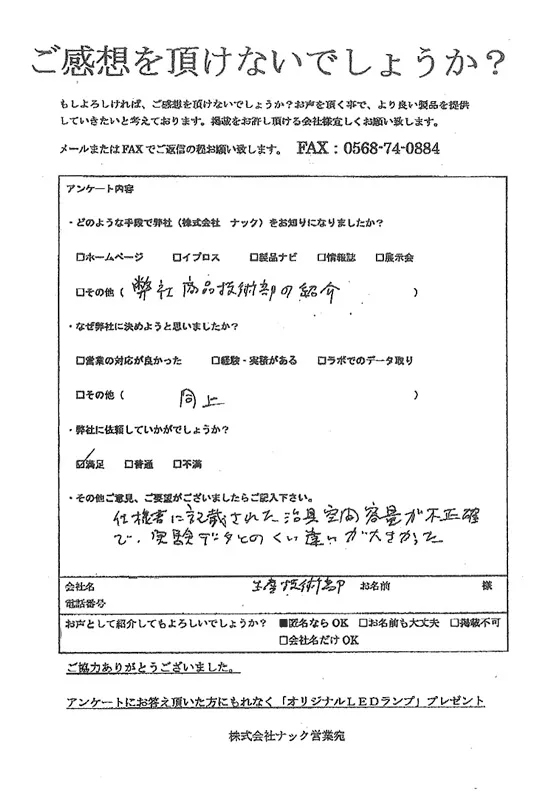 ご感想を頂けないでしょうか？
もしよろしければ、ご感想を頂けないでしょうか？お声を頂く事で、より良い製品を提供
していきたいと考えております。掲載をお許し頂ける会社様宜しくお願い致します。
メールまたはFAXでご返信の程お願い致します。 FAX：0568-74-0884
アンケート内容
・どのような手段で弊社（株式会社 ナック）をお知りになりましたか？
□ホームページ □イプロス □製品ナビ □情報誌 □展示会
□その他（ 弊社商品技術部の紹介 ）
・なぜ弊社に決めようと思いましたか？
□営業の対応が良かった □経験・実積がある □ラボでのデータ取り
□その他（ 同上 ）
・弊社に依頼していかがでしょうか？
☑満足 □普通 □不満
・その他ご意見、ご要望がございましたらご記入下さい。
仕様書に記載された治具空間容量が不正確
で、実験データとのくい違いが大きかった
会社名 生産技術部 お名前 様
電話番号
お声として紹介してもよろしいでしょうか？ ■匿名なら OK □お名前も大丈夫 □掲載不可
□会社名だけ OK
ご協力ありがとうございました。
アンケートにお答え頂いた方にもれなく「オリジナルＬＥＤランプ」プレゼント
株式会社ナック営業宛